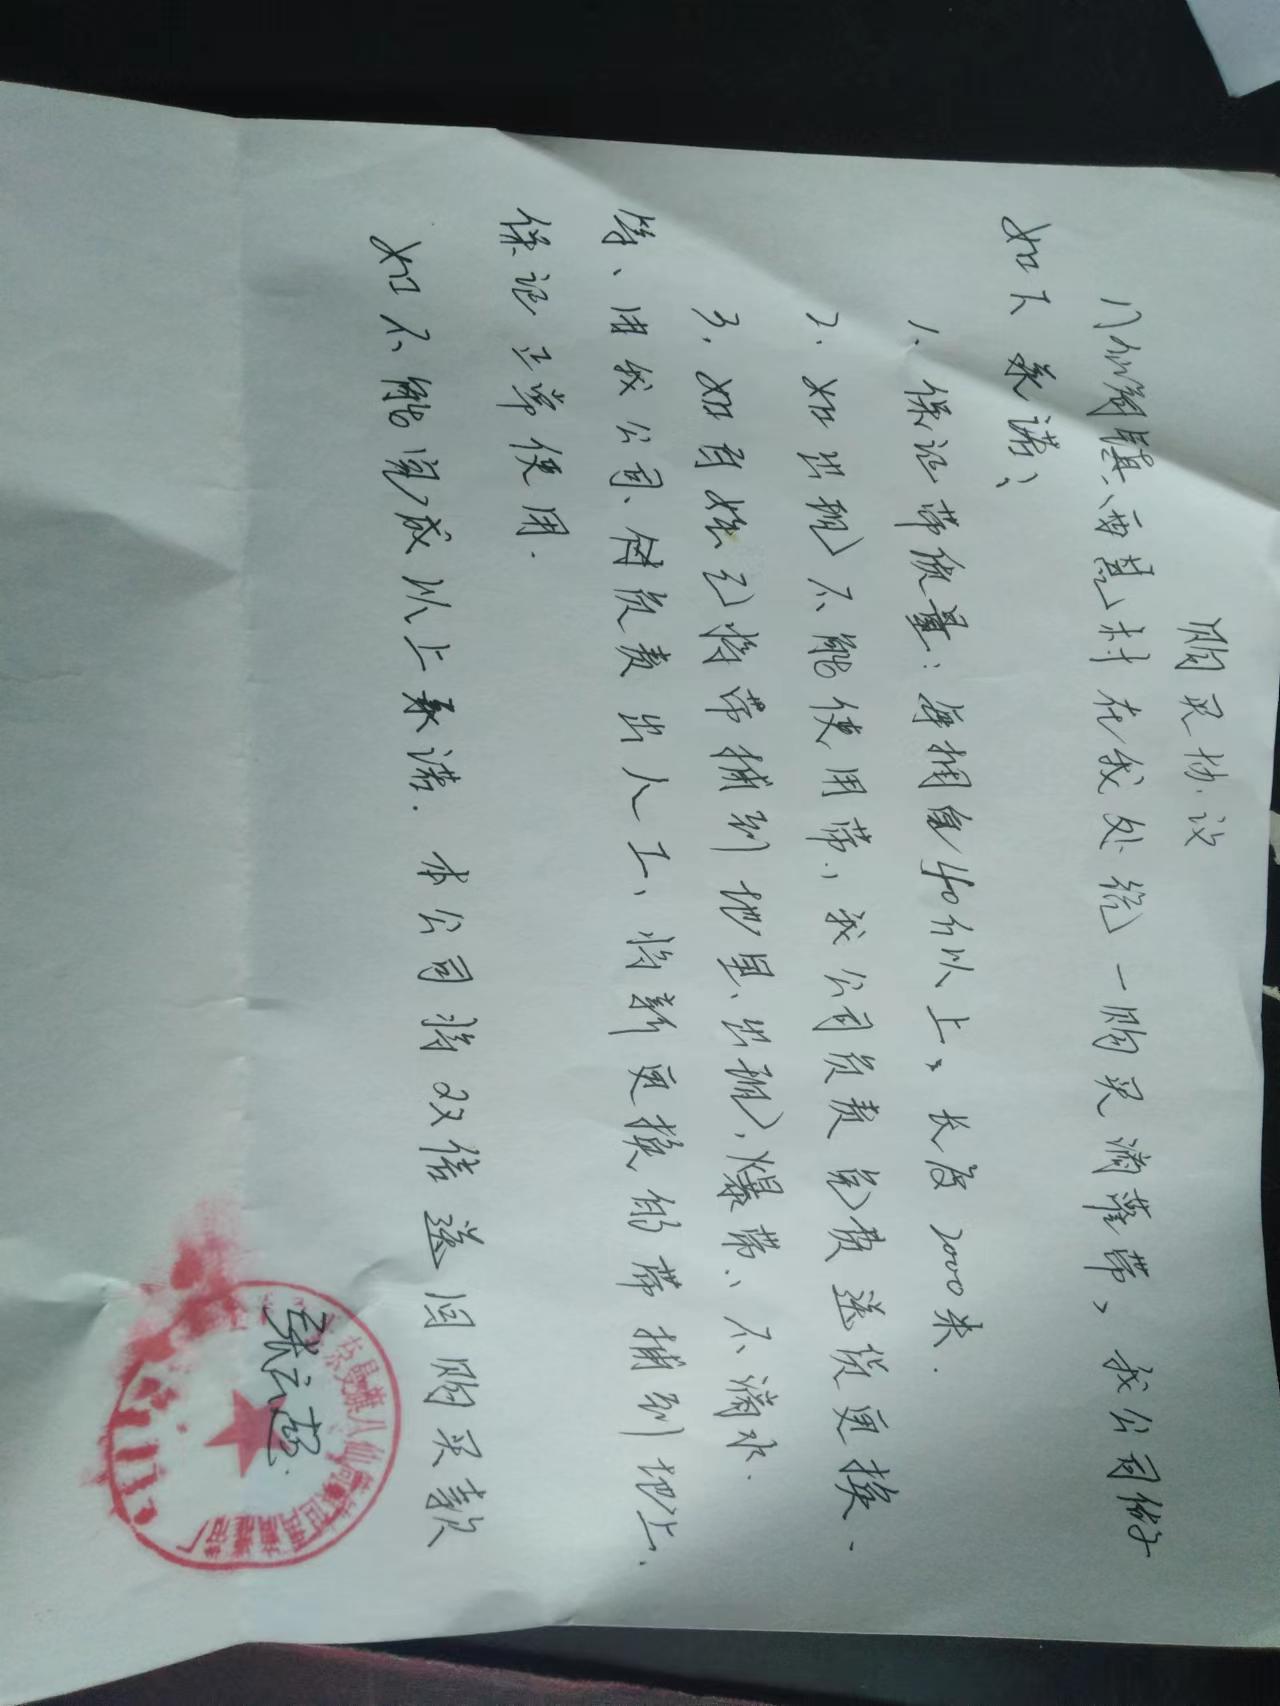 购买协议
八仙筒镇、西荒村在我处统一购买滴灌带，我公司做
如下承诺：
1、保证带质量：每捆自40斤以上、长度2000米．
2．如出现不能使用带，我公司负责免费送货更换．
3．如百姓已将带捕到地里、出现爆带、不滴水．
等、由我公司、负责出人工、将新更换的带捕到地上．
保证正常使用．
如不能完成以上承诺．本公司将双倍送回购买款
张云超
奈曼旗八仙筒镇